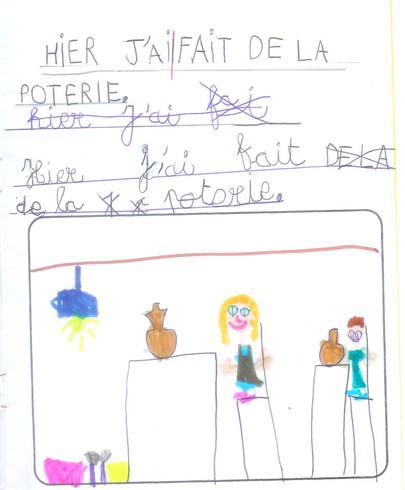 HiER J'Ai FAiT DE LA
POTERIE.
hier j'ai fai
Hier j'ai fait DE LA
de la x x potorie.